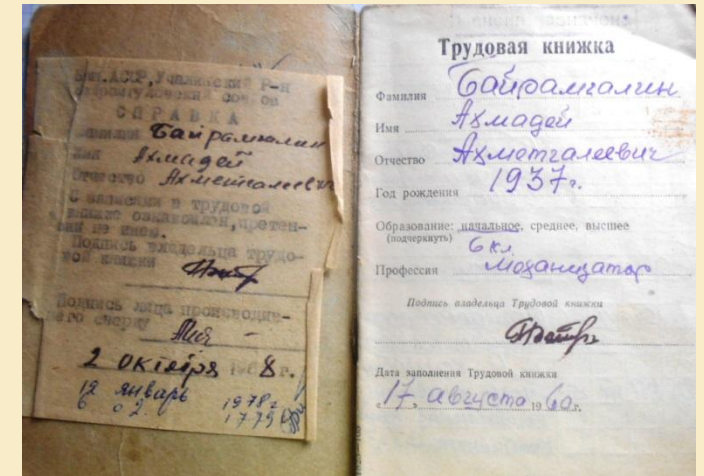 Баш.АССР,Учалинский р-н
СПРАВКА
Фамилия Байрамгалин
Имя Ахмадей
Отчество Ахметгалеевич
С записями в трудовой
книжке ознакомлен,претен-
зий не имею.
Подпись владельца трудо-
вой книжки
Подпись лица производив-
шего сверку
2 октября 1968 г.
12 январь 1978 г
6 02 1979
Трудовая книжка
Фамилия Байрамгалин
Имя Ахмадей
Отчество Ахметгалеевич
Год рождения 1937 г.
Образование: начальное, среднее, высшее
(подчеркнуть) 6 кл
Профессия Механизатор
Подпись владельца Трудовой книжки
Дата заполнения Трудовой книжки
„17„ августа 1960 г.